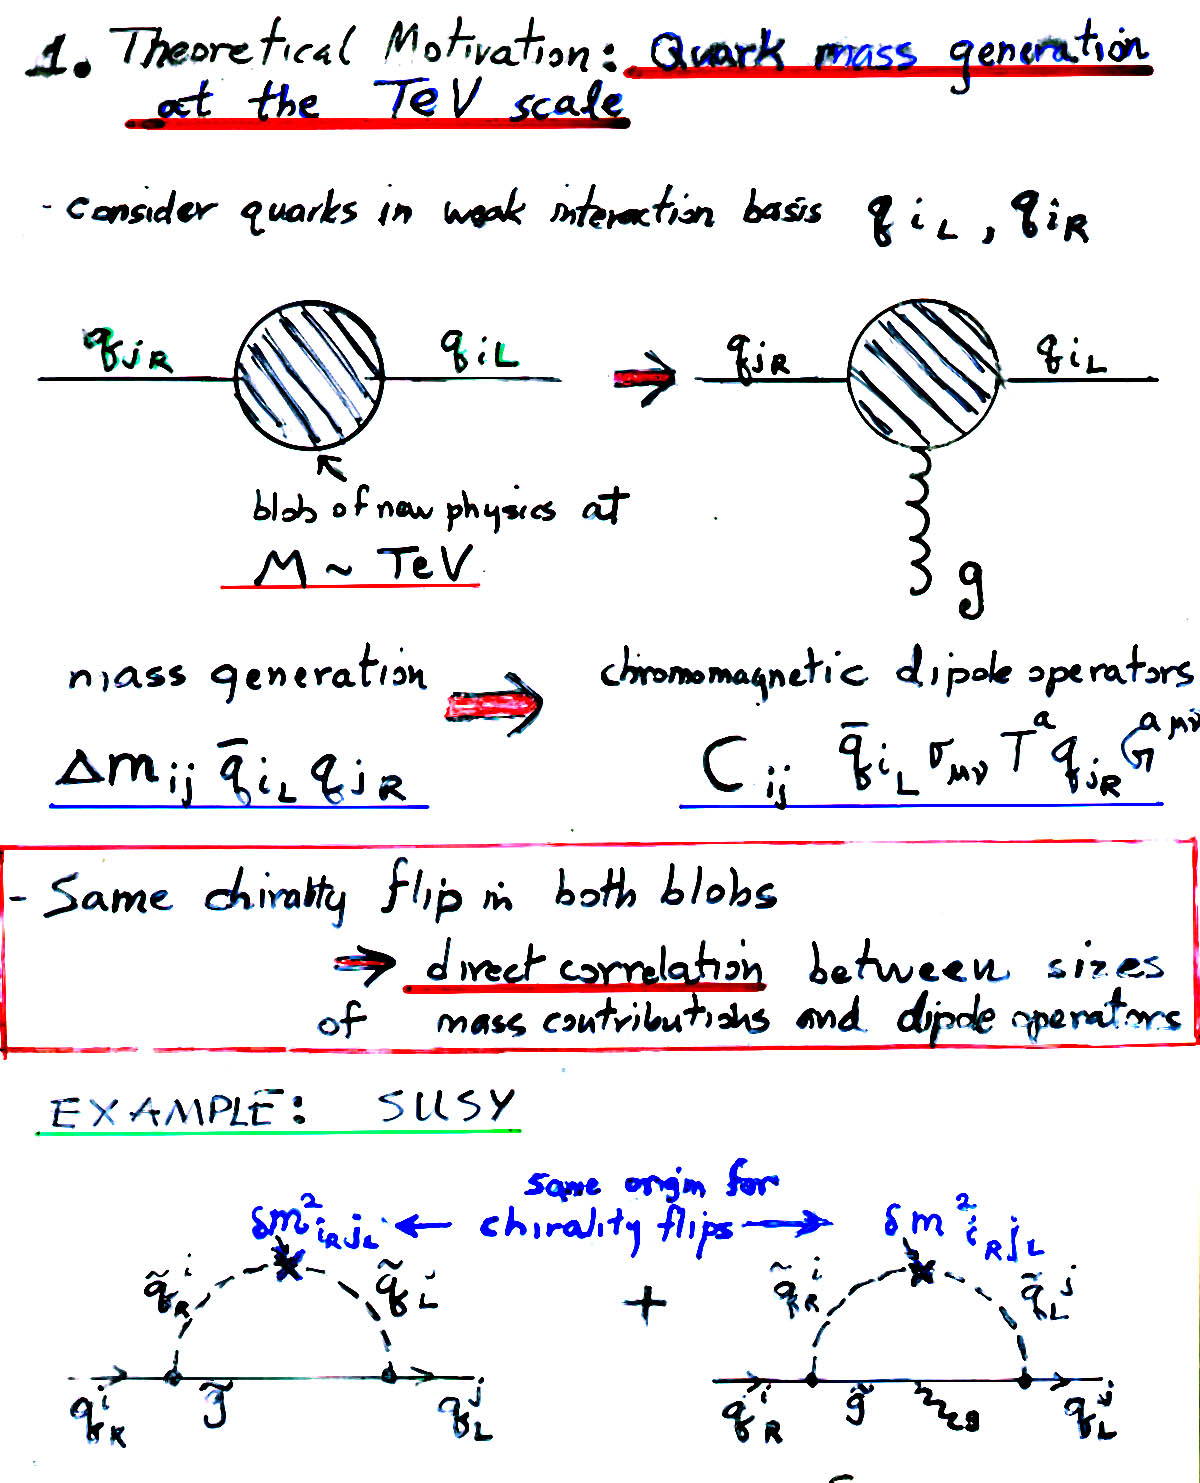 1. Theoretical Motivation: Quark mass generation
at the TeV scale
- consider quarks in weak interaction basis q_{iL}, q_{iR}
q_{jR} q_{iL} ⇒ q_{jR} q_{iL}
blob of new physics at
M ~ TeV
g
mass generation ⇒ chromomagnetic dipole operators
Δm_{ij} q̄_{iL} q_{jR} C_{ij} q̄_{iL} σ_{μν} T^a q_{jR} G^{aμν}
- Same chirality flip in both blobs
⇒ direct correlation between sizes
of mass contributions and dipole operators
EXAMPLE: SUSY
same origin for
δm²_{i_R j_L} ← chirality flips → δm²_{i_R j_L}
q̃_R^i q̃_L^j + q̃_R^i q̃_L^j
q_R^i g̃ q_L^j q_R^i g̃ g q_L^j